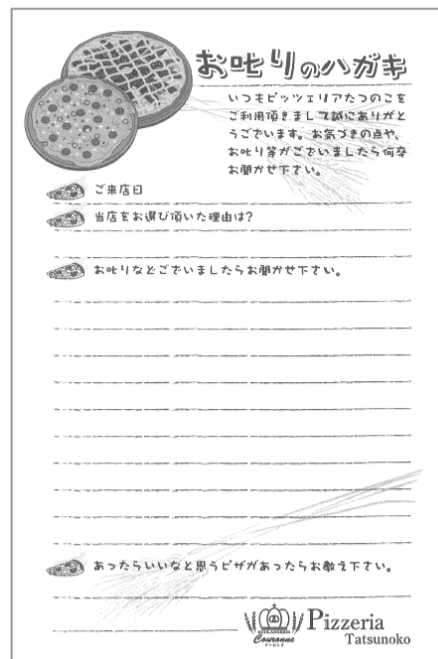 お叱りのハガキ
いつもピッツェリアたつのこを
ご利用頂きまして誠にありがと
うございます。お気づきの点や、
お叱り等がございましたら何卒
お聞かせ下さい。
ご来店日
当店をお選び頂いた理由は?
お叱りなどございましたらお聞かせ下さい。
あったらいいなと思うピザがあったらお教え下さい。
Couronne
Pizzeria
Tatsunoko